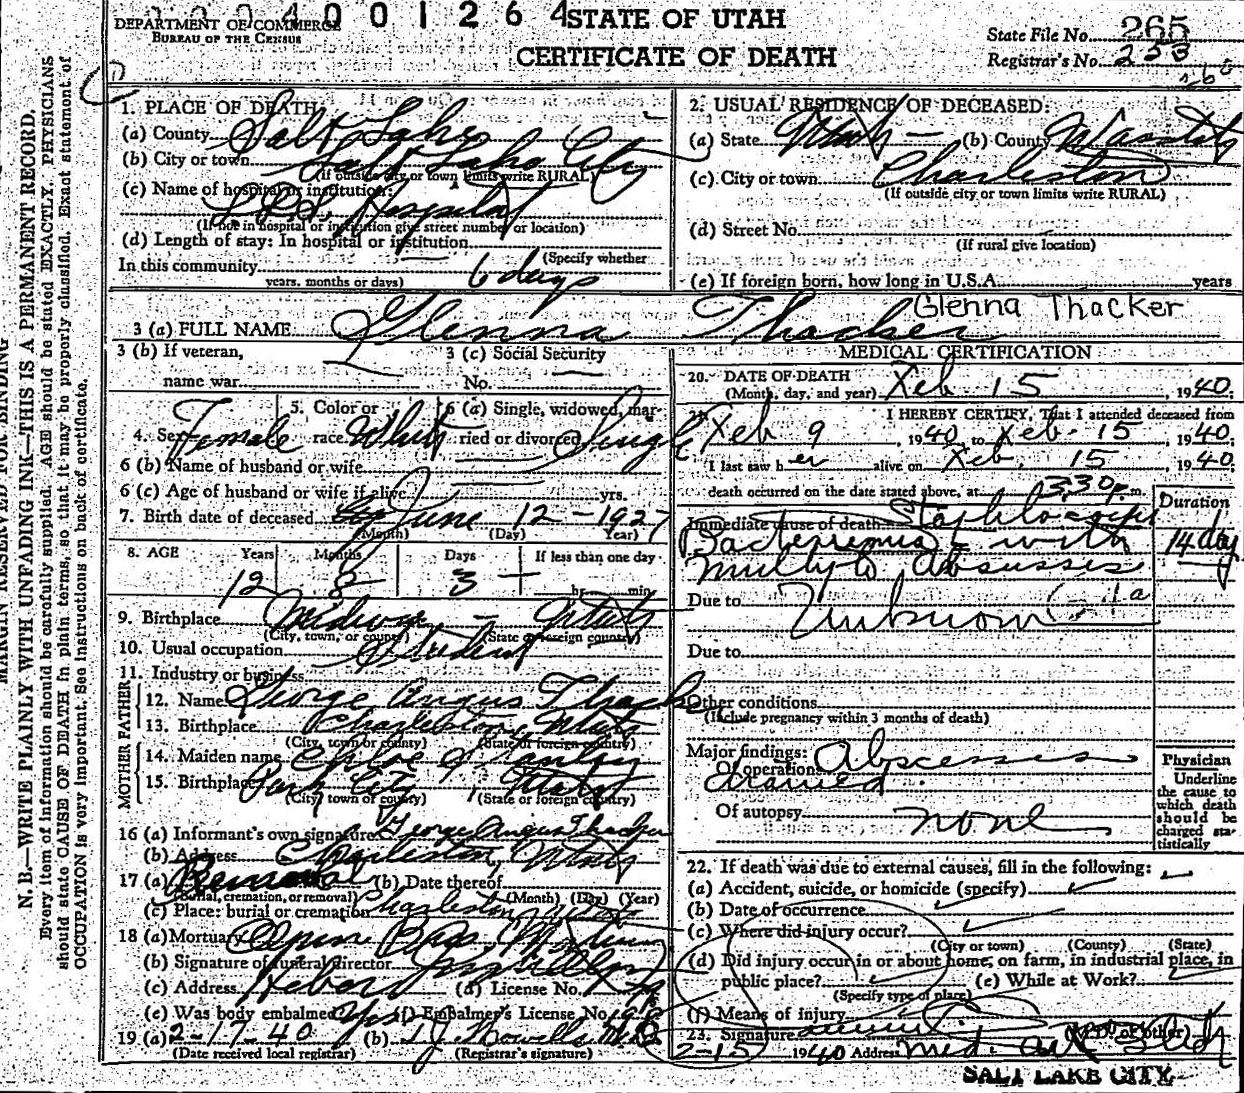 2 0 4 0 0 1 2 6 4
DEPARTMENT OF COMMERCE
BUREAU OF THE CENSUS
STATE OF UTAH
CERTIFICATE OF DEATH
State File No. 265
Registrar's No. 253
MARGIN RESERVED FOR BINDING
N. B.—WRITE PLAINLY WITH UNFADING INK—THIS IS A PERMANENT RECORD.
Every item of information should be carefully supplied. AGE should be stated EXACTLY. PHYSICIANS
should state CAUSE OF DEATH in plain terms, so that it may be properly classified. Exact statement of
OCCUPATION is very important. See instructions on back of certificate.
1. PLACE OF DEATH
(a) County Salt Lake
(b) City or town Salt Lake City
(If outside city or town limits write RURAL)
(c) Name of hospital or institution:
L.D.S. Hospital
(If not in hospital or institution give street number or location)
(d) Length of stay: In hospital or institution
(Specify whether
In this community 6 days
years, months or days)
2. USUAL RESIDENCE OF DECEASED:
(a) State Utah (b) County Wasatch
(c) City or town Charleston
(If outside city or town limits write RURAL)
(d) Street No.
(If rural give location)
(e) If foreign born, how long in U.S.A. years
3 (a) FULL NAME Glenna Thacker Glenna Thacker
3 (b) If veteran,
name war
3 (c) Social Security
No.
4. Sex Female
5. Color or
race White
6 (a) Single, widowed, mar-
ried or divorced Single
6 (b) Name of husband or wife
6 (c) Age of husband or wife if alive yrs.
7. Birth date of deceased June 12 - 1927
(Month) (Day) Year)
8. AGE Years Months Days If less than one day
12 8 3 hr. min.
9. Birthplace Midway - Utah
(City, town, or county) (State or foreign country)
10. Usual occupation Student
11. Industry or business
FATHER
12. Name George Angus Thacker
13. Birthplace Charleston, Utah
(City, town or county) (State or foreign country)
MOTHER
14. Maiden name Chloe
15. Birthplace Park City, Utah
(City, town or county) (State or foreign country)
16 (a) Informant's own signature George Angus Thacker
(b) Address Charleston, Utah
17 (a) Removal (b) Date thereof
(Burial, cremation, or removal) (Month) (Day) (Year)
(c) Place: burial or cremation Charleston Utah
18 (a) Mortuary
(b) Signature of funeral director
(c) Address Heber (d) License No.
(e) Was body embalmed Yes (f) Embalmer's License No.
19 (a) 2-17-40 (b)
(Date received local registrar) (Registrar's signature)
MEDICAL CERTIFICATION
20. DATE OF DEATH
(Month, day, and year) Feb 15, 1940.
21. I HEREBY CERTIFY, That I attended deceased from
Feb 9, 1940, to Feb. 15, 1940.
I last saw her alive on Feb. 15, 1940.
death occurred on the date stated above, at 3:30 p. m.
Duration
Immediate cause of death
Bacteremia with 14 day
Due to Unknown
Due to
Other conditions
(Include pregnancy within 3 months of death)
Major findings:
Of operations Abscesses
drained
Of autopsy none
Physician
Underline
the cause to
which death
should be
charged sta-
tistically
22. If death was due to external causes, fill in the following:
(a) Accident, suicide, or homicide (specify)
(b) Date of occurrence
(c) Where did injury occur?
(City or town) (County) (State)
(d) Did injury occur in or about home, on farm, in industrial place, in
public place? (e) While at Work?
(Specify type of place)
(f) Means of Injury
23. Signature (M.D. or other)
2-15 1940 Address Med.
SALT LAKE CITY